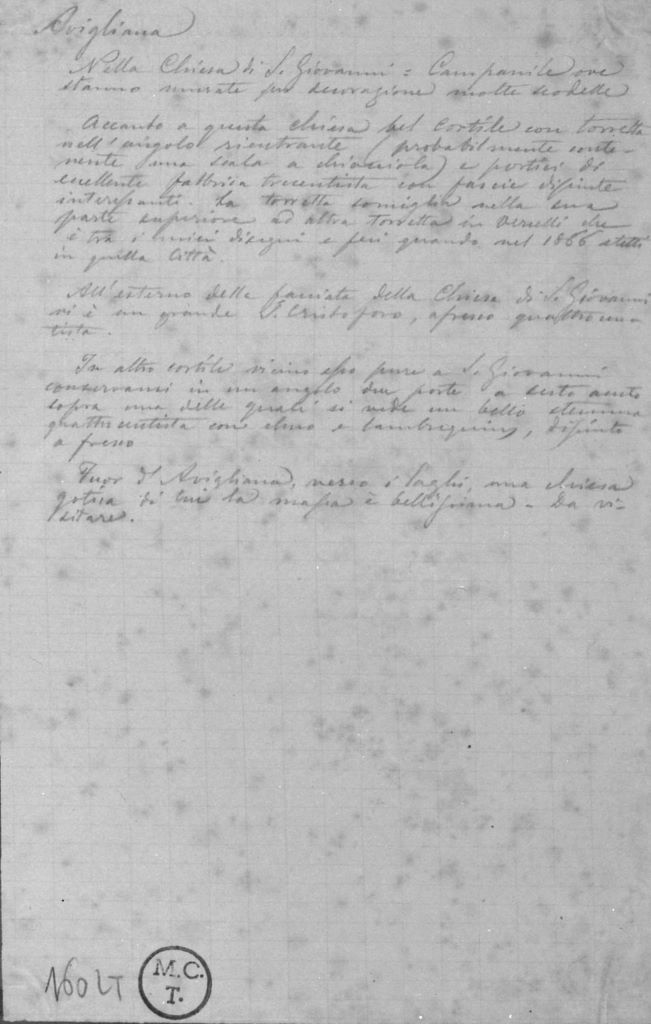 Avigliana
Nella Chiesa di S. Giovanni = Campanile ove
stanno murate per decorazione molte scodelle
Accanto a questa chiesa bel cortile con torretta
nell'angolo rientrante (probabilmente conte-
nente una scala a chiocciola) e portici di
eccellente fabbrica trecentista con fascie dipinte
interessanti. La torretta somiglia nella sua
parte superiore ad altra torretta in Vercelli che
è tra i miei disegni e feci quando nel 1866 stetti
in quella Città.
All'esterno della facciata della Chiesa di S. Giovanni
vi è un grande S. Cristoforo, afresco quattrocen-
tista.
In altro cortile vicino pure a S. Giovanni
conservansi in un angolo due porte a sesto acuto
sopra una delle quali si vede un bello stemma
quattrocentista con elmo e lambrequins, dipinto
a fresco
Fuor d'Avigliana, verso i laghi, una chiesa
gotica di cui la massa è bellissima - Da vi-
sitare.
M.C.
T.